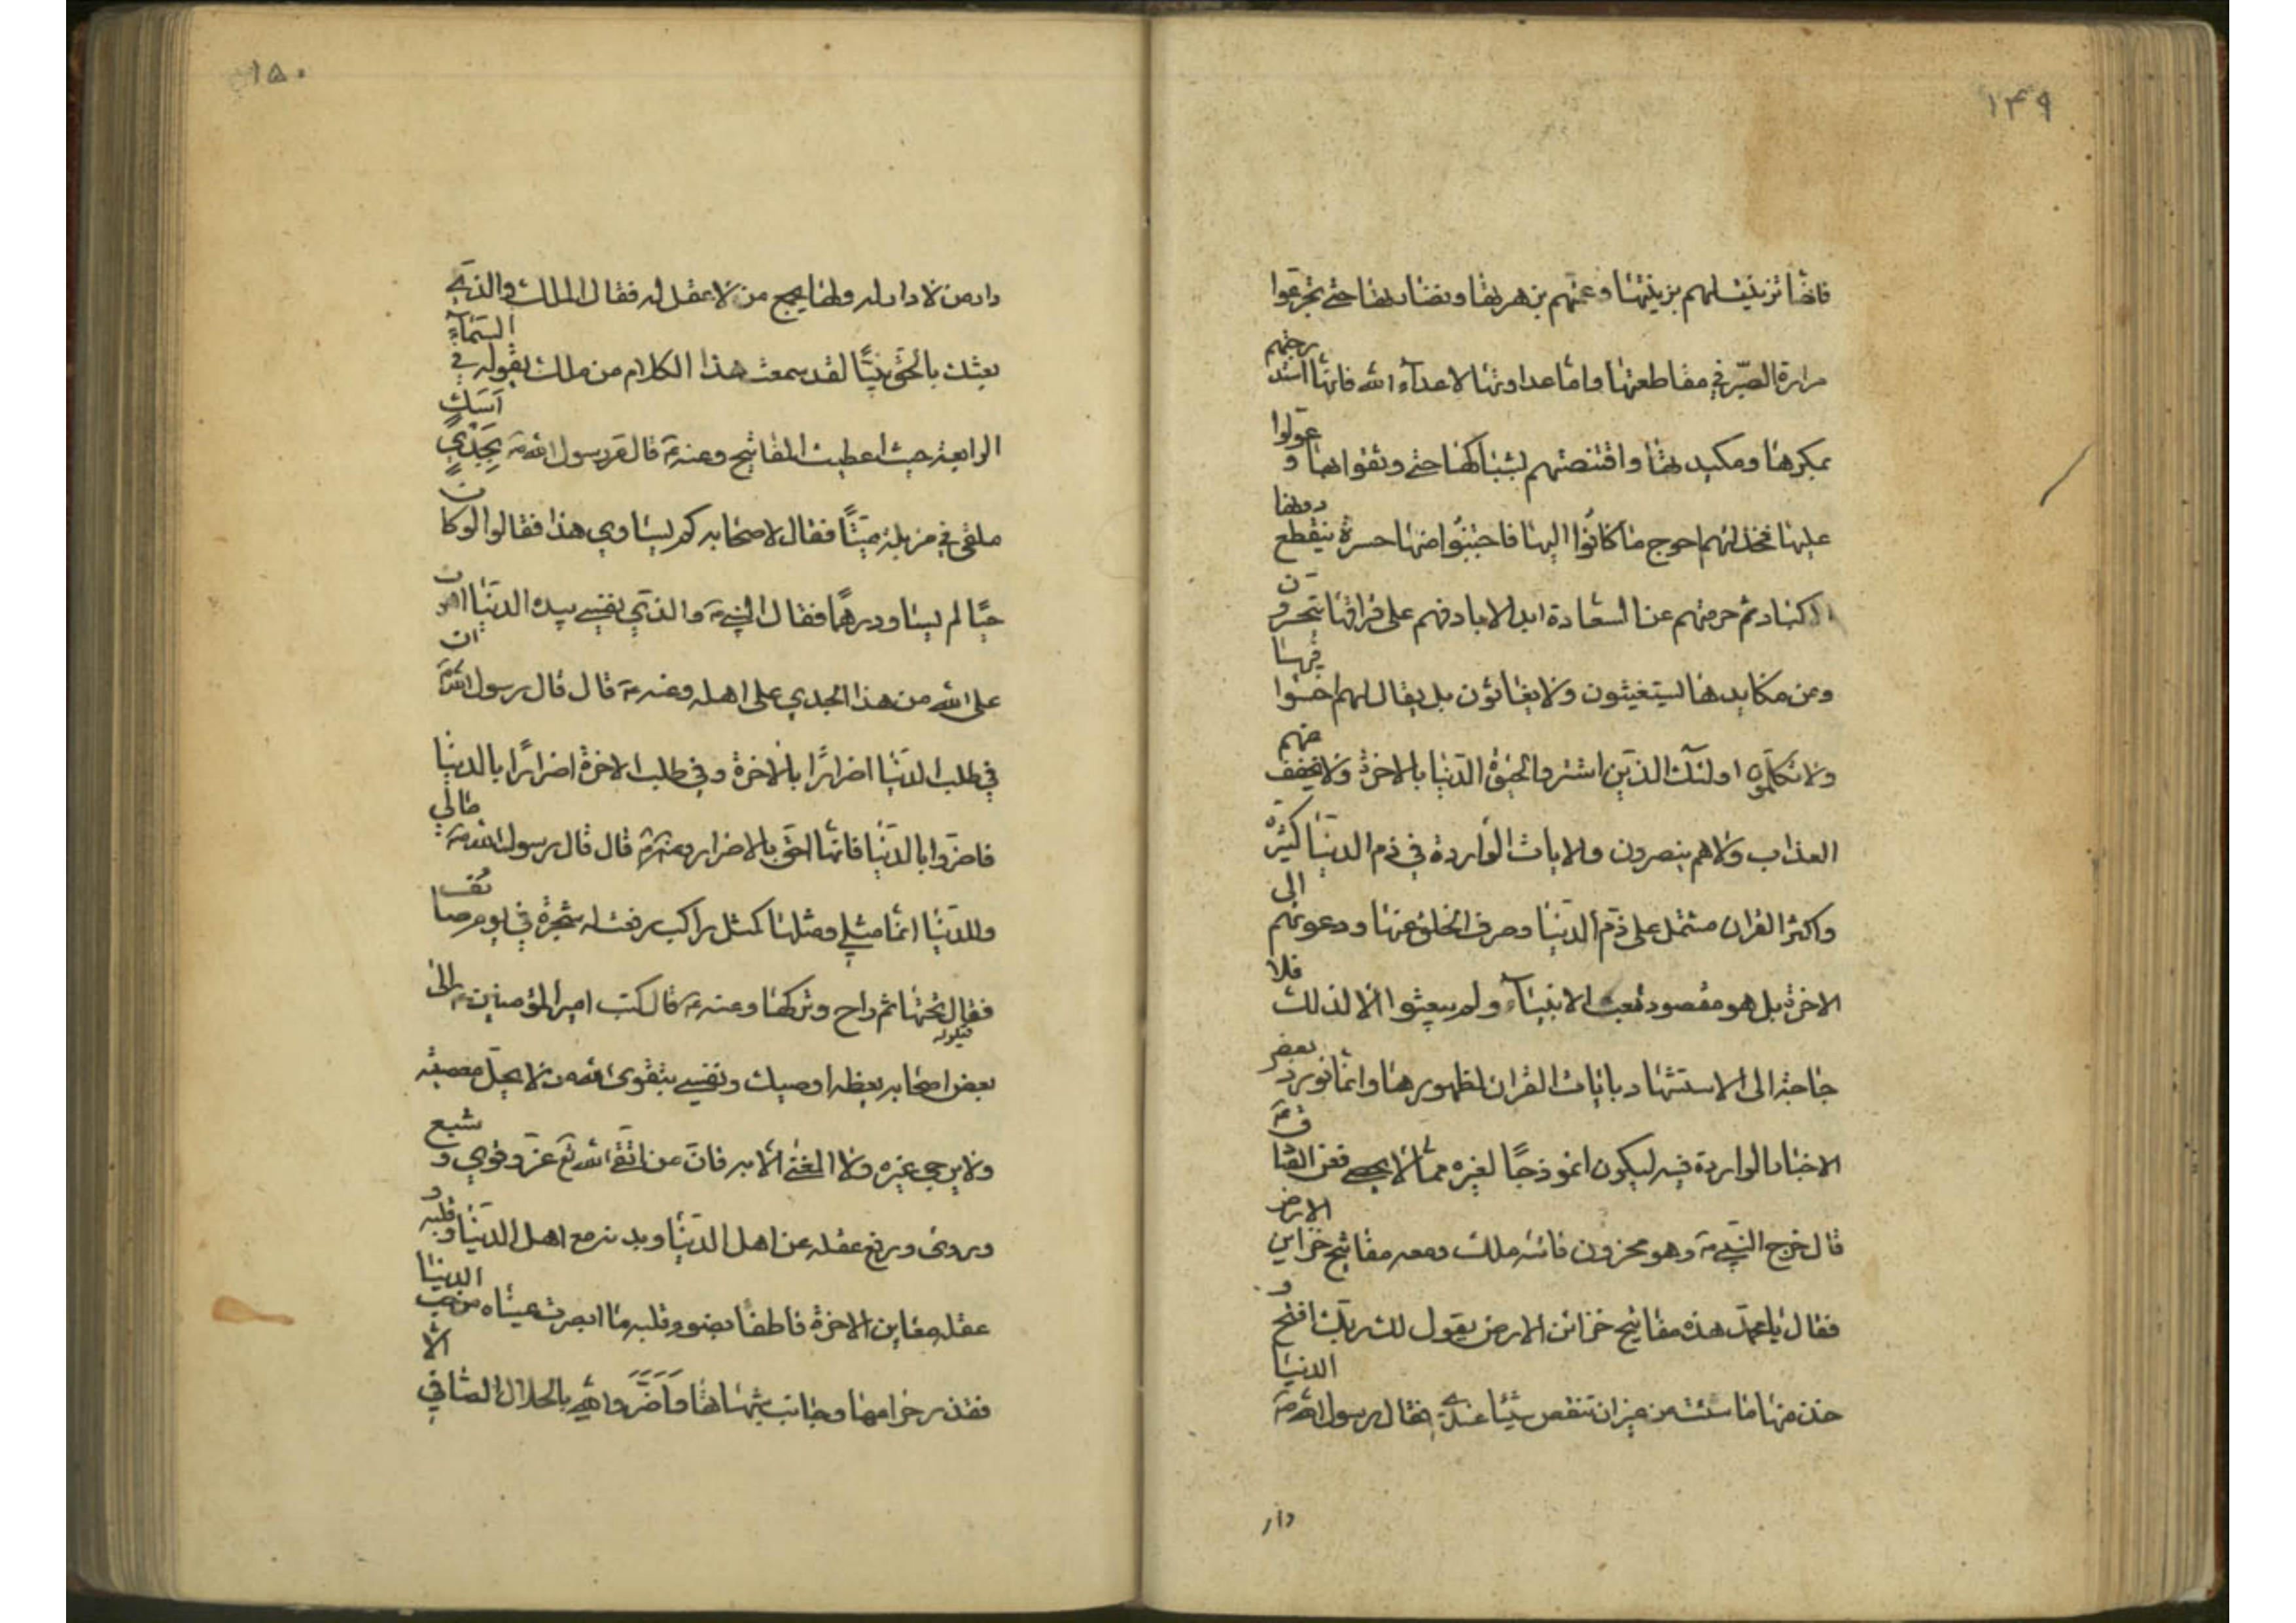 ١۴٩
فانها تزينت لهم بزينتها وعمتهم بزهرتها ونضارتها حتى تجرعوا
مرارة الصبر في مقاطعتها واما عداوتها لاعداء الله فانها استدرجتهم
بمكرها ومكيدتها واقتنصتهم بشباكها حتى وثقوا بها وعولوا
عليها فخذلتهم احوج ما كانوا اليها فاجتنوا منها حسرة ينقطع دونها
الاكباد ثم حرمتهم عن السعادة ابد الاباد فهم على فراقها يتحسرون
ومن مكايدها يستغيثون ولا يغاثون بل يقال لهم اخسئوا فيها
ولا تكلمون اولئك الذين اشتروا الحيوة الدنيا بالاخرة ولا يخفف عنهم
العذاب ولا هم ينصرون والايات الواردة في ذم الدنيا كثيرة
واكثر القران مشتمل على ذم الدنيا وصرف الخلق عنها ودعوتهم الى
الاخرة بل هو مقصود بعث الانبياء ولم يبعثوا الا لذلك فلا
حاجة الى الاستشهاد بايات القران لظهورها وانما نورد بعض
الاخبار الواردة فيه ليكون انموذجا لغيره مما لا يحصى فعن الصادق ع
قال خرج النبي ص وهو محزون فاتاه ملك ومعه مفاتيح خزاين الارض
فقال يا محمد هذه مفاتيح خزائن الارض يقول لك ربك افتح و
خذ منها ما شئت من غير ان تنقص شيئا عندي فقال رسول الله ص الدنيا
دار
١۵٠
دار من لا دار له ولها يجمع من لا عقل له فقال الملك والذي
بعثك بالحق نبيا لقد سمعت هذا الكلام من ملك يقوله في السماء
الرابعة حيث اعطيت المفاتيح وعنه ع قال مر رسول الله ص بجدي اسك
ملقى في مزبلة ميتا فقال لاصحابه كم يساوي هذا فقالوا لو كان
حيا لم يساو درهما فقال النبي ص والذي نفسي بيده الدنيا اهون
على الله من هذا الجدي على اهله وعنه ع قال قال رسول الله ص ان
في طلب الدنيا اضرارا بالاخرة وفي طلب الاخرة اضرارا بالدنيا
فاضروا بالدنيا فانها احق بالاضرار وعنه ع قال قال رسول الله ص مالي
وللدنيا انما مثلي ومثلها كمثل راكب رفعت له شجرة في يوم صائف
فقال تحتها ثم راح وتركها وعنه ع قال كتب امير المؤمنين ع الى
قيلولة
بعض اصحابه يعظه اوصيك ونفسي بتقوى الله من لا يحل معصيته
ولا يرجى غيره ولا الغنى الا به فان من اتقى الله تع عز وقوي وشبع
وروى ورفع عقله عن اهل الدنيا وبدنه مع اهل الدنيا وقلبه و
عقله معاين الاخرة فاطفا بضوء قلبه ما ابصرت عيناه من حب الدنيا
فقذر حرامها وجانب شبهاتها واضر والله بالحلال الصافي الا